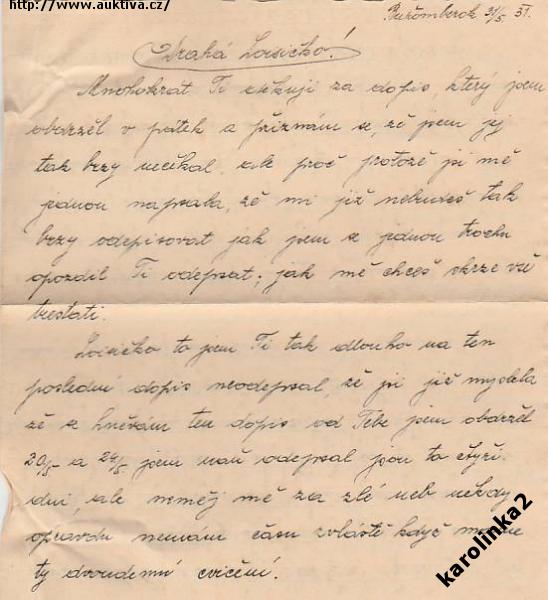 http://www.auktiva.cz/
Ružomberok 31/5 31.
Drahá Loisičko!
Mnohokrát Ti děkuji za dopis, který jsem
obdržěl v pátek a přiznám se, zě jsem jej
tak brzy nečěkal, ale proč protožě jsi mě
jednou napsala, zě mi již nebudeš tak
brzy odepisovat jak jsem se jednou trochu
opozdil Ti odepsat; jak mě chceš skrze vše
trestati.
Loisičko to jsem Ti tak dlouho na ten
poslední dopis neodepsal, zě jsi již myslela
zě se hněvám ten dopis od Tebe jsem obdržěl
20/5 a 24/5 jsem naň odepsal jsou to čtyři
dni, ale neměj mě za zlé neb někdy
opravdu nemám času zvláště když máme
ty dvoudenní cvičění.
karolinka2